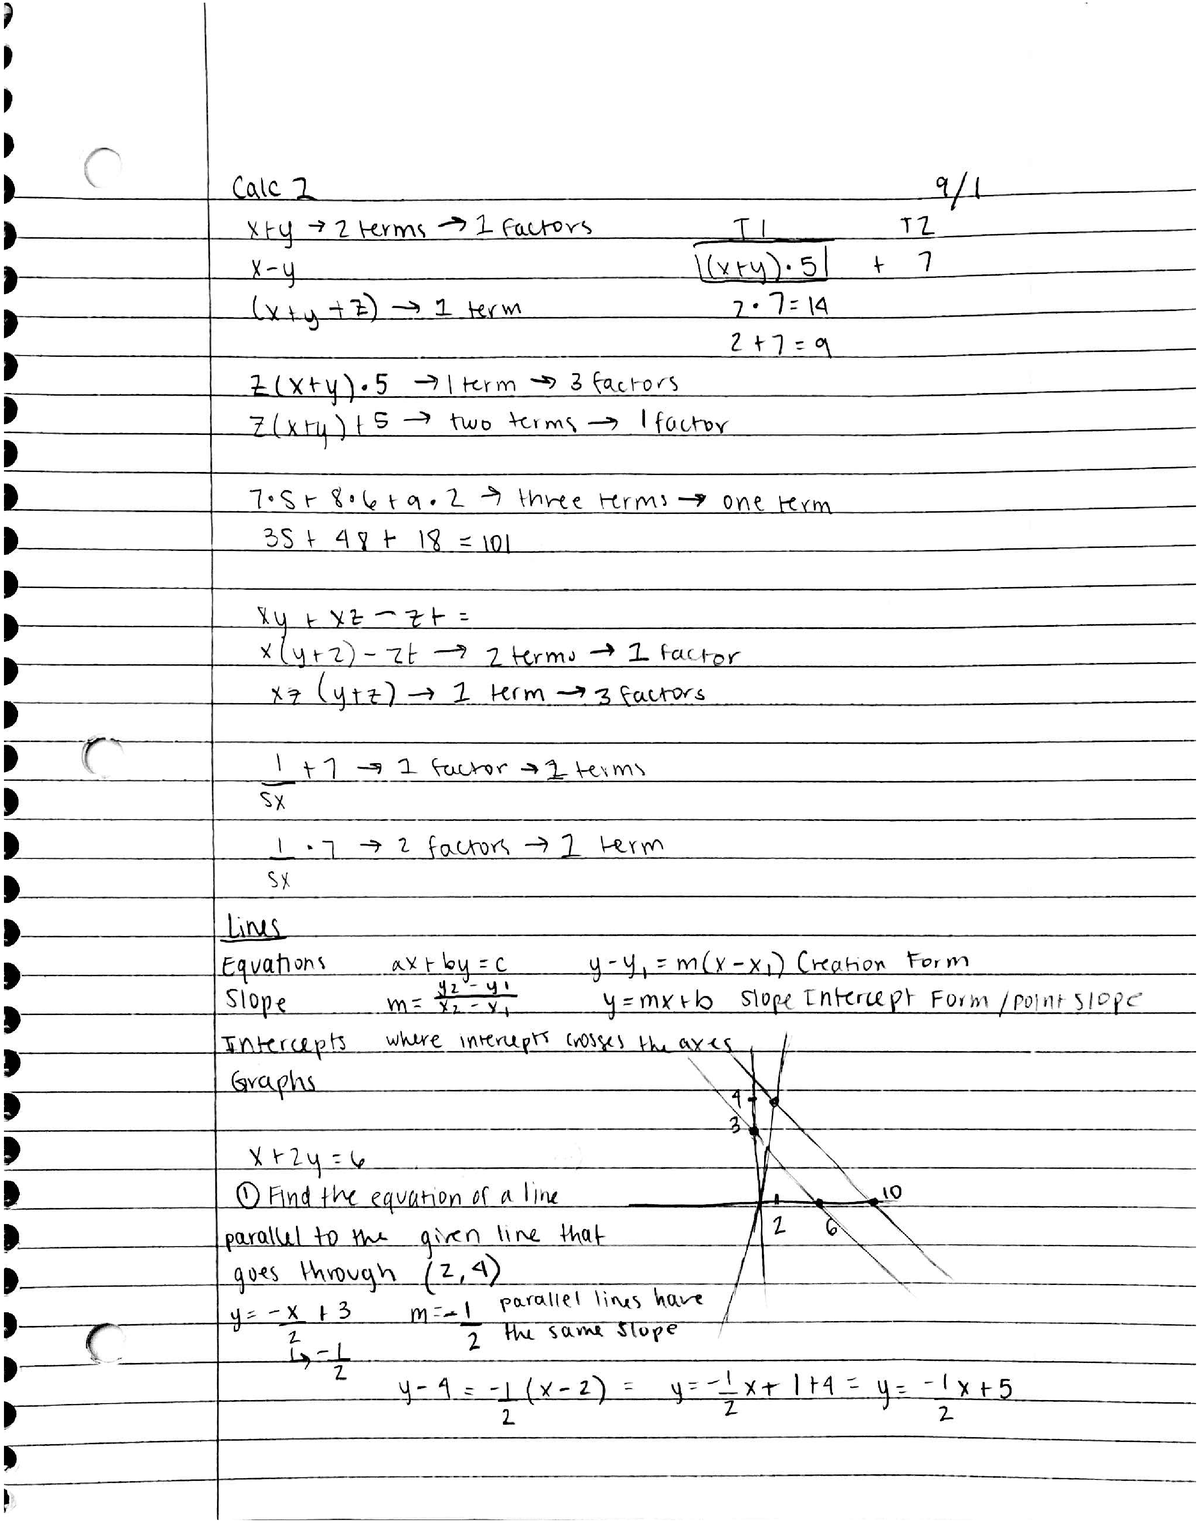 Calc 1 9/1
x+y → 2 terms → 1 factors T1 T2
x-y |(x+y)·5| + 7
(x+y+z) → 1 term 2·7=14
2+7=9
z(x+y)·5 → 1 term → 3 factors
z(x+y)+5 → two terms → 1 factor
7·5+8·6+9·2 → three terms → one term
35+48+18=101
xy+xz-zt=
x(y+z)-zt → 2 terms → 1 factor
xz(y+z) → 1 term → 3 factors
1/5x +7 → 1 factor → 2 terms
1/5x ·7 → 2 factors → 1 term
Lines
Equations ax+by=c y-y₁=m(x-x₁) Creation Form
Slope m= y₂-y₁/x₂-x₁ y=mx+b Slope Intercept Form /point slope
Intercepts where intercepts crosses the axes
Graphs
4
3
x+2y=6
① Find the equation of a line 10
parallel to the given line that 2 6
goes through (2,4)
y=-x/2 +3 m=-1/2 parallel lines have
the same slope
↳ -1/2
y-4=-1/2(x-2) = y=-1/2x+1+4 = y=-1/2x+5